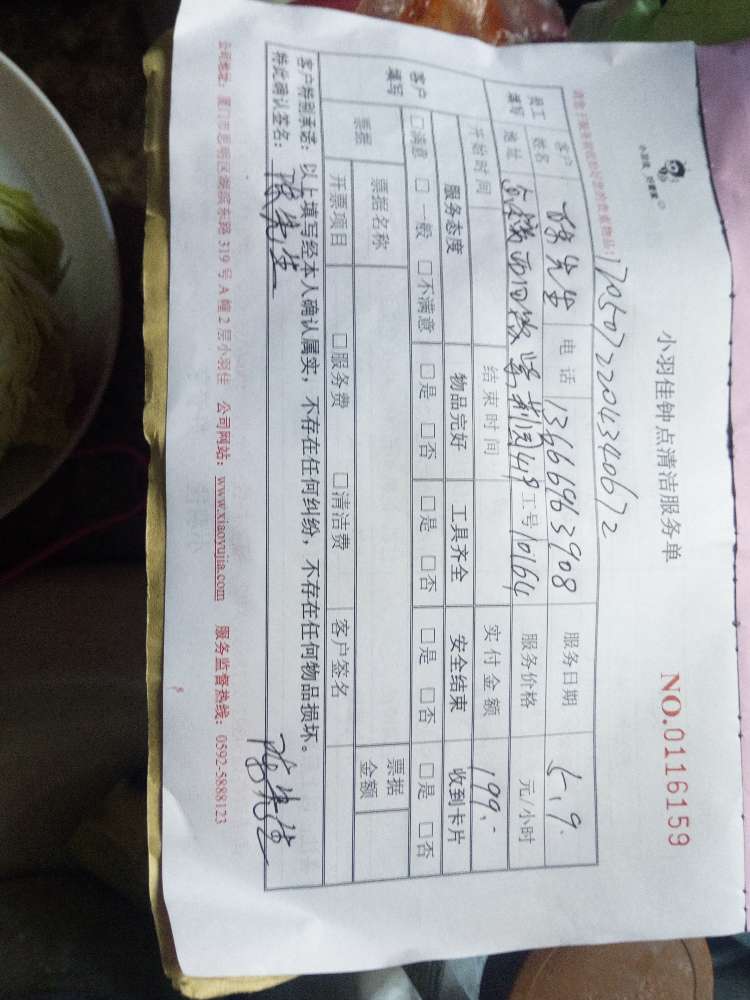 小羽佳 好管家
小羽佳钟点清洁服务单
NO.0116159
1705072204340672
请您于服务前收好您的贵重物品!
员工填写 客户姓名 陈先生 电话 13666963908 服务日期 5.9.
地址 419 工号 10164 服务价格 元/小时
客户填写 开始时间 结束时间 实付金额 199.-
服务态度 物品完好 工具齐全 安全结束 收到卡片
□满意 □一般 □不满意 □是 □否 □是 □否 □是 □否 □是 □否
票据 票据名称 票据金额
开票项目 □服务费 □清洁费 客户签名
客户特别承诺:以上填写经本人确认属实,不存在任何纠纷,不存在任何物品损坏。
特此确认签名: 陈先生 陈先生
公司地址:厦门市思明区湖滨东路319号A幢2层小羽佳 公司网站:www.xiaoyujia.com 服务监督热线:0592-5888123